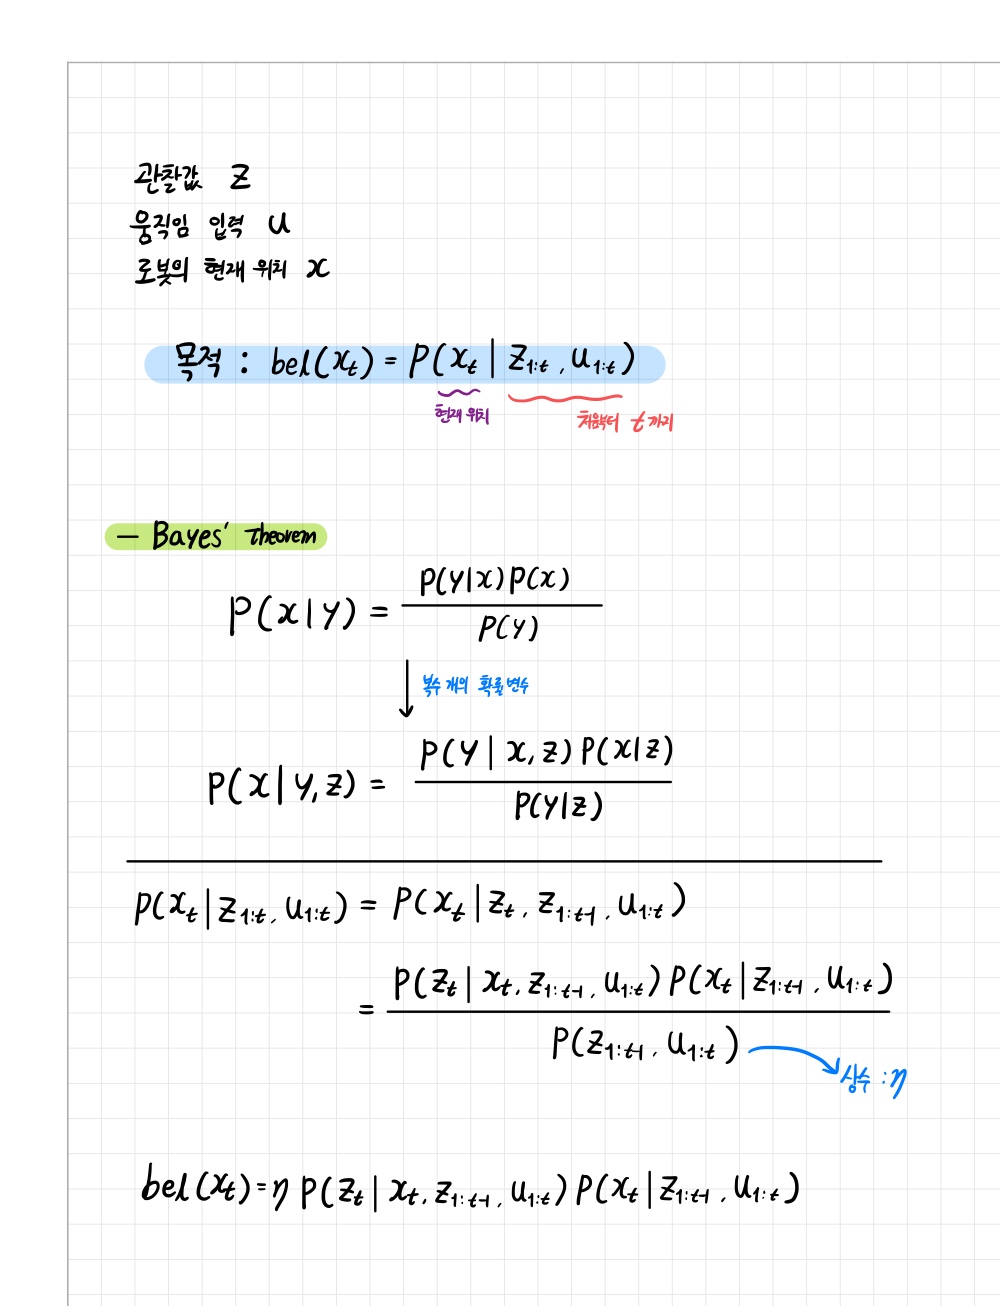 관찰값 z
움직임 입력 u
로봇의 현재 위치 x
목적 : bel(x_t) = P(x_t | z_{1:t}, u_{1:t})
현재 위치 처음부터 t까지
— Bayes' Theorem
P(x|y) = P(y|x)P(x) / P(y)
↓ 복수 개의 확률변수
P(x|y,z) = P(y|x,z)P(x|z) / P(y|z)
P(x_t | z_{1:t}, u_{1:t}) = P(x_t | z_t, z_{1:t-1}, u_{1:t})
= P(z_t | x_t, z_{1:t-1}, u_{1:t}) P(x_t | z_{1:t-1}, u_{1:t}) / P(z_{1:t-1}, u_{1:t})
상수 : η
bel(x_t) = η P(z_t | x_t, z_{1:t-1}, u_{1:t}) P(x_t | z_{1:t-1}, u_{1:t})